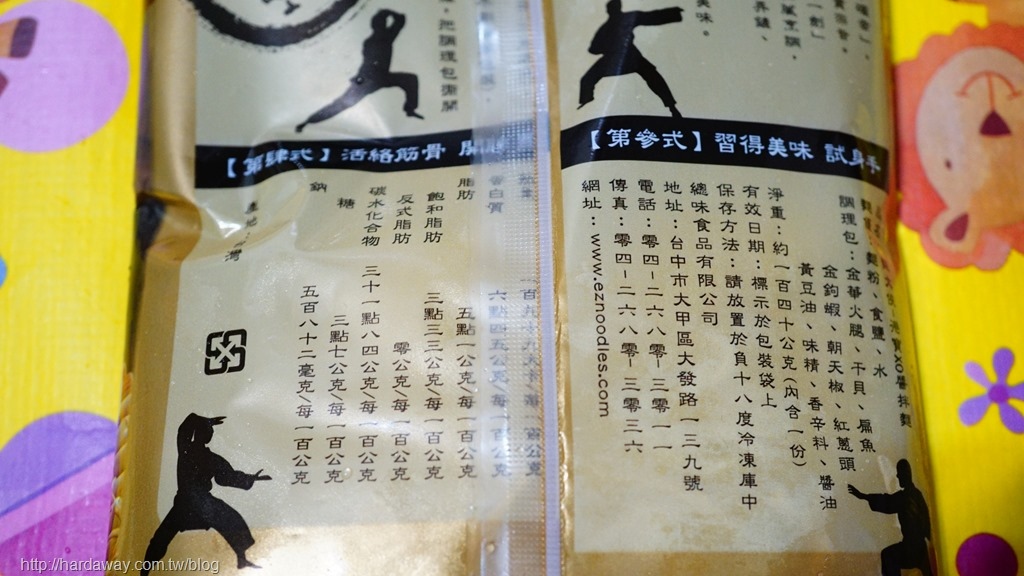 曜拳」,
一劍」
美味。
【第參式】習得美味 試身手
麵粉、食鹽、水
調理包:金華火腿、干貝、扁魚
金鉤蝦、朝天椒、紅蔥頭
黃豆油、味精、香辛料、醬油
淨重:約一百四十公克(內含一份)
有效日期:標示於包裝袋上
保存方法:請放置於負十八度冷凍庫中
總味食品有限公司
地址:台中市大甲區大發路一三九號
電話:零四-二六八零-三零一一
傳真:零四-二六八零-三零三六
網址:www.eznoodles.com
【第肆式】活絡筋骨
蛋白質 六點四五公克/每一百公克
脂肪 五點一公克/每一百公克
飽和脂肪 三點三三公克/每一百公克
反式脂肪 零公克/每一百公克
碳水化合物 三十一點八四公克/每一百公克
糖 三點七公克/每一百公克
鈉 五百八十二毫克/每一百公克
產地:台灣
http://hardaway.com.tw/blog